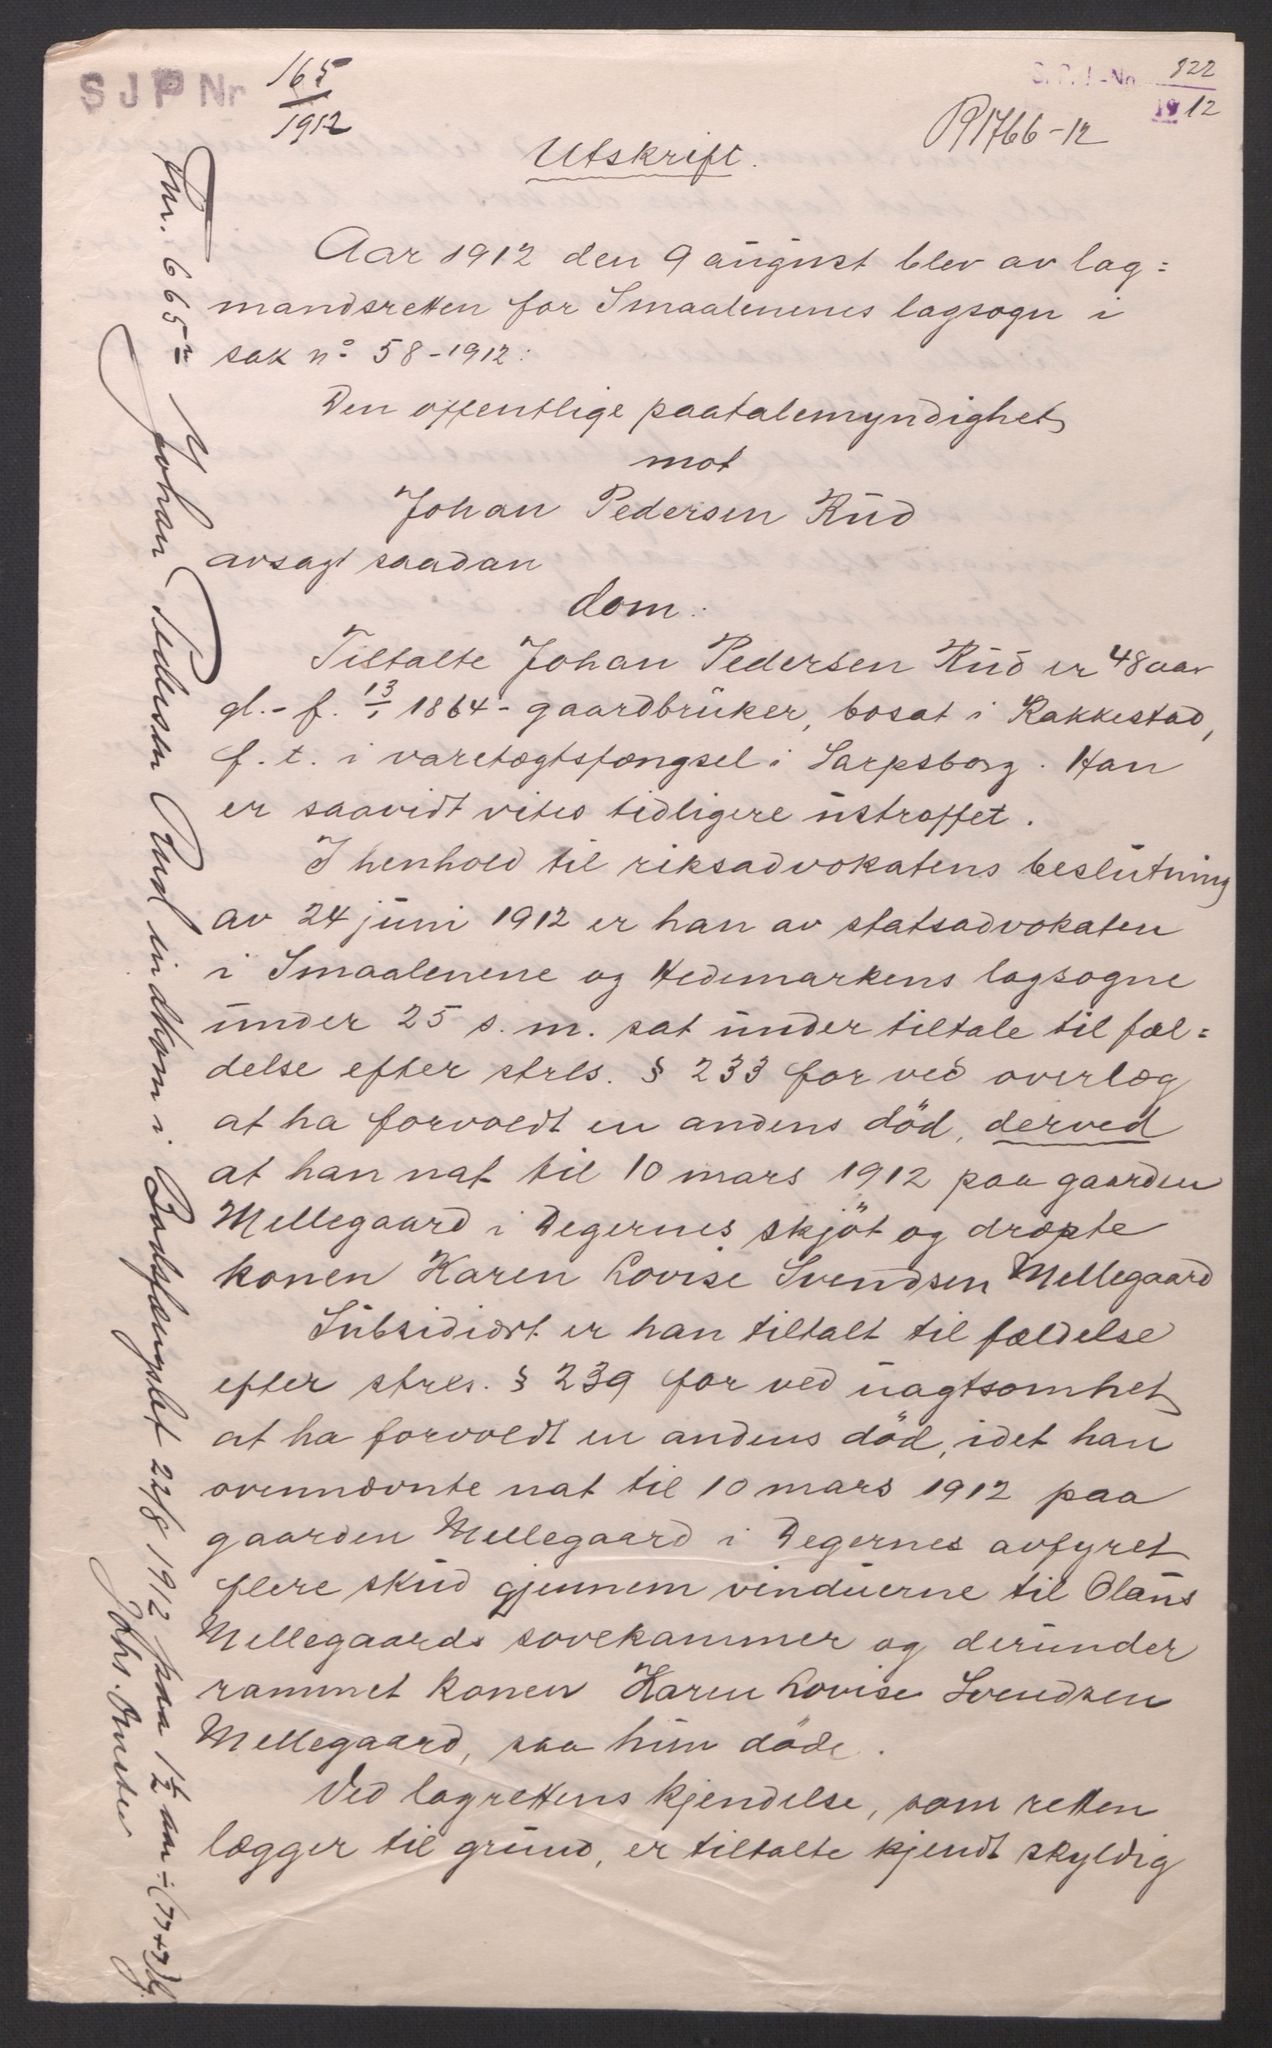 SJP Nr 165/1912
S.P.I-No 822/1912
P1766-12
Utskrift.
Aar 1912 den 9 august blev av lag=
mandsretten for Smaalenenes lagsogn i
sak nº 58-1912:
Den offentlige paatalemyndighet
mot
Johan Pedersen Rud
avsagt saadan
dom:
Tiltalte Johan Pedersen Rud er 48 aar
gl. - f. 13/1 1864 - gaardbruker, bosat i Rakkestad,
f. t. i varetægtsfængsel i Sarpsborg. Han
er saavidt vites tidligere ustraffet.
I henhold til riksadvokatens beslutning
av 24 juni 1912 er han av statsadvokaten
i Smaalenene og Hedemarkens lagsogne
under 25 s. m. sat under tiltale til fæl=
delse efter strls. § 233 for ved overlæg
at ha forvoldt en andens död, derved
at han nat til 10 mars 1912 paa gaarden
Mellegaard i Degernes skjöt og dræpte
konen Karen Lovise Svendsen Mellegaard
Subsidiært er han tiltalt til fældelse
efter strls. § 239 for ved uagtsomhet
at ha forvoldt en andens död, idet han
ovennævnte nat til 10 mars 1912 paa
gaarden Mellegaard i Degernes avfyret
flere skud gjennem vinduerne til Olaus
Mellegaards sovekammer og derunder
rammet konen Karen Lovise Svendsen
Mellegaard, saa hun döde.
Ved lagrettens kjendelse, som retten
lægger til grund, er tiltalte kjendt skyldig
Fnr. 665 Johan Pedersen Rud indkom i Bodsfængslet 22/8 1912 paa 1½ aar ÷ (77+7) dg.
Johs.